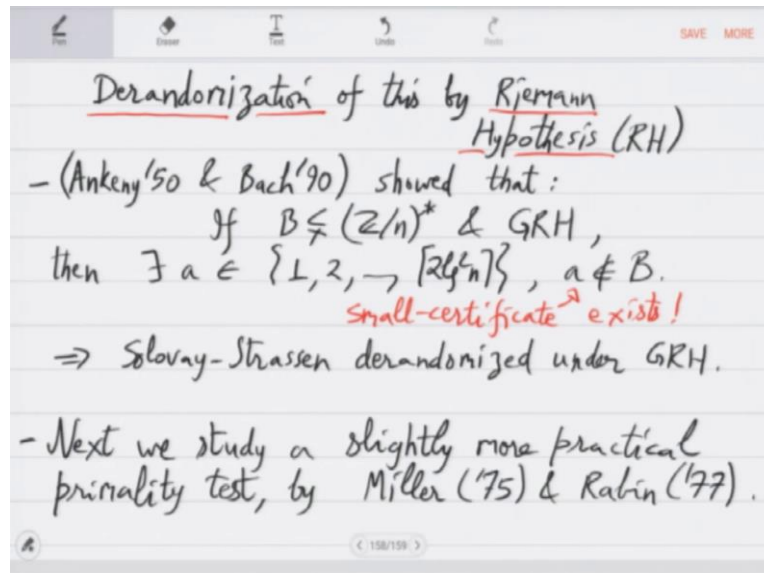 Pen Eraser Text Undo Redo SAVE MORE
Derandomization of this by Riemann
Hypothesis (RH)
- (Ankeny'50 & Bach'90) showed that :
If B ⊊ (Z/n)* & GRH ,
then ∃ a ∈ {1, 2, —, ⌈2lg²n⌉} , a ∉ B.
Small-certificate ↗ exists!
⇒ Solovay-Strassen derandomized under GRH.
- Next we study a slightly more practical
primality test, by Miller ('75) & Rabin ('77) .
< 158/159 >